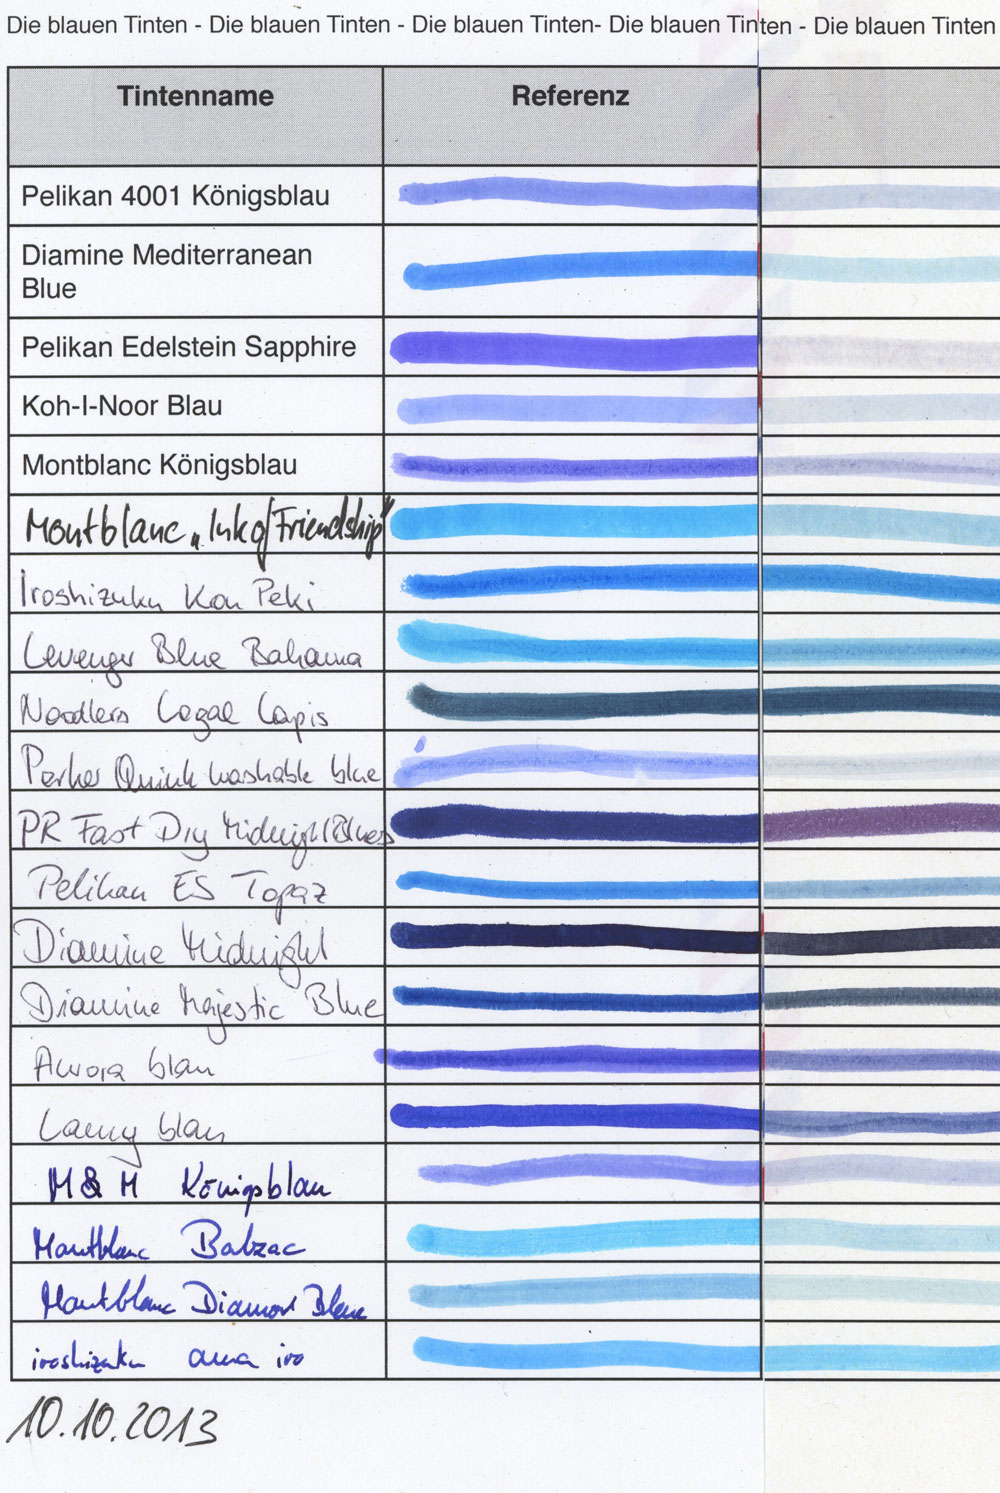 Die blauen Tinten - Die blauen Tinten - Die blauen Tinten- Die blauen Tinten - Die blauen Tinten
Tintenname Referenz
Pelikan 4001 Königsblau
Diamine Mediterranean
Blue
Pelikan Edelstein Sapphire
Koh-I-Noor Blau
Montblanc Königsblau
Montblanc „Ink of Friendship"
Iroshizuku Kon Peki
Levenger Blue Bahama
Noodlers Legal Lapis
Parker Quink washable blue
PR Fast Dry Midnight Blues
Pelikan ES Topaz
Diamine Midnight
Diamine Majestic Blue
Aurora blau
Lamy blau
M & M Königsblau
Montblanc Balzac
Montblanc Diamont Blue
iroshizuku ama iro
10.10.2013